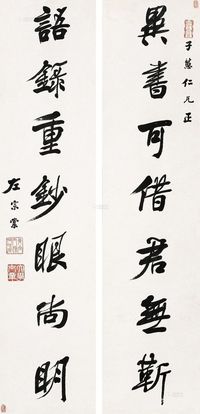 子仁兄正
異書可借君無靳
語錄重鈔眼尚明
左宗棠